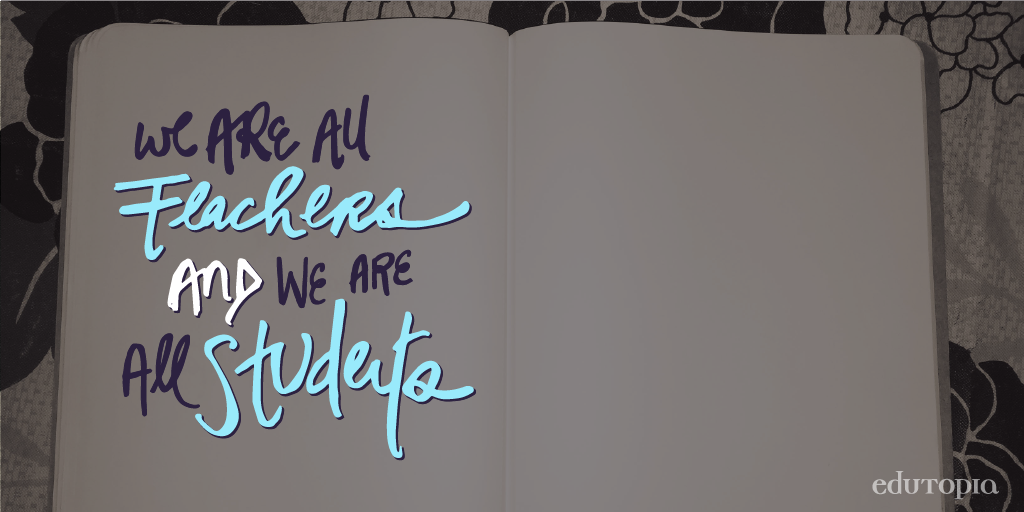 We ARE All
Teachers
AND WE ARE
All Students
edutopia